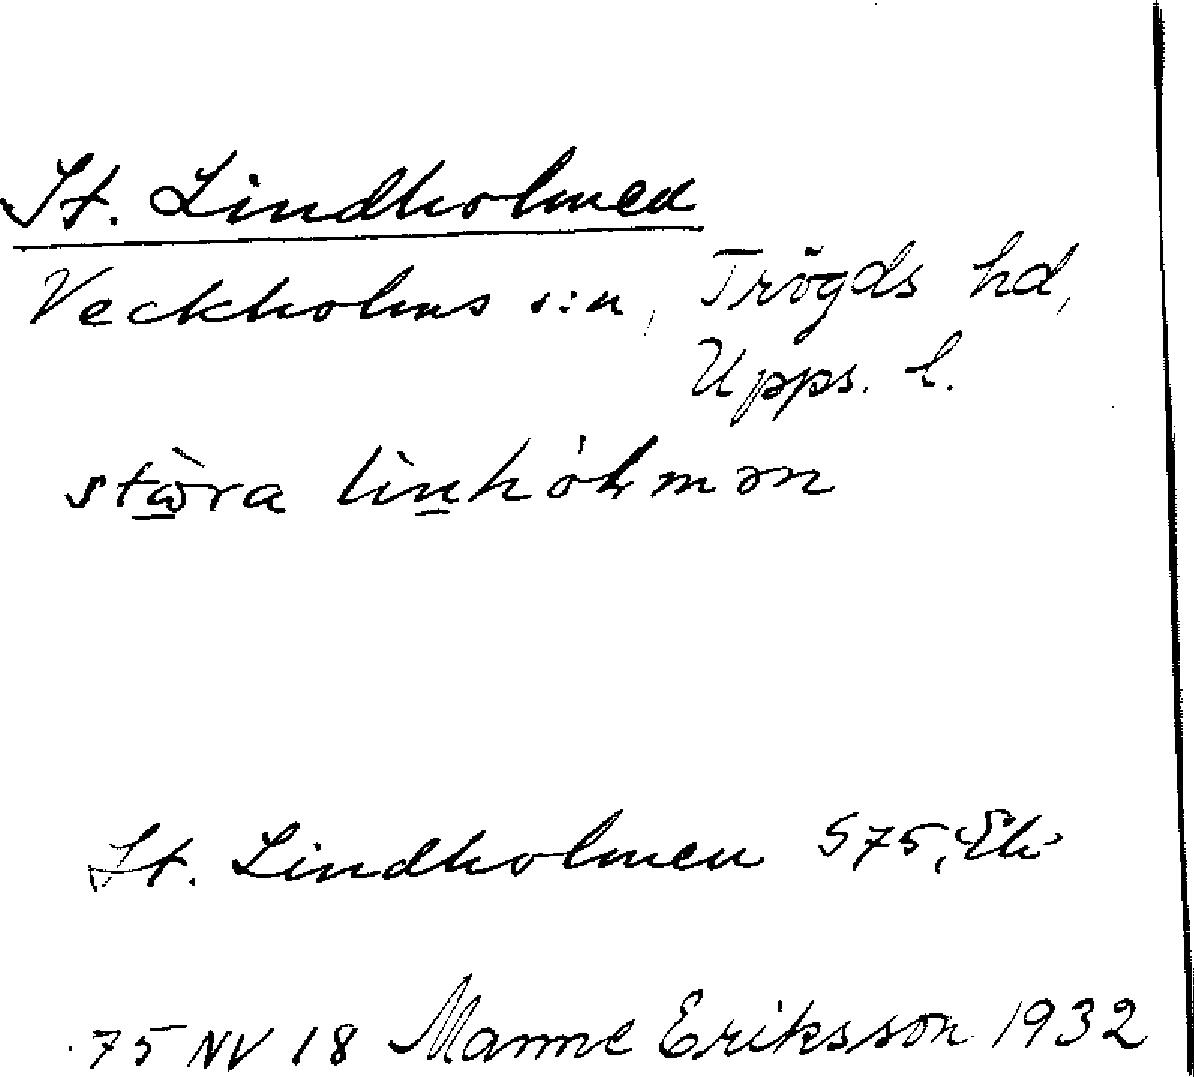 St. Lindholmen
Veckholms s:n, Trögds hd,
Upps. l.
stɷ̀ra lìnhólmən
St. Lindholmen S75, Ek
75 NV 18 Manne Eriksson 1932